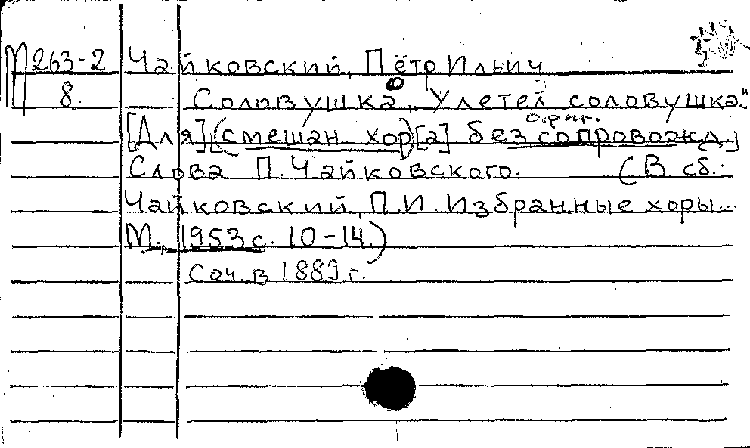 П263-2 Чайковский, Пётр Ильич
8. Соловушка. "Улетел соловушка."
ориг.
[Для] (смешан. хор)[а] без сопровожд.]
Слова П. Чайковского. (В сб.:
Чайковский, П.И. Избранные хоры.
М., 1953 с. 10-14.)
Соч. в 1889 г.